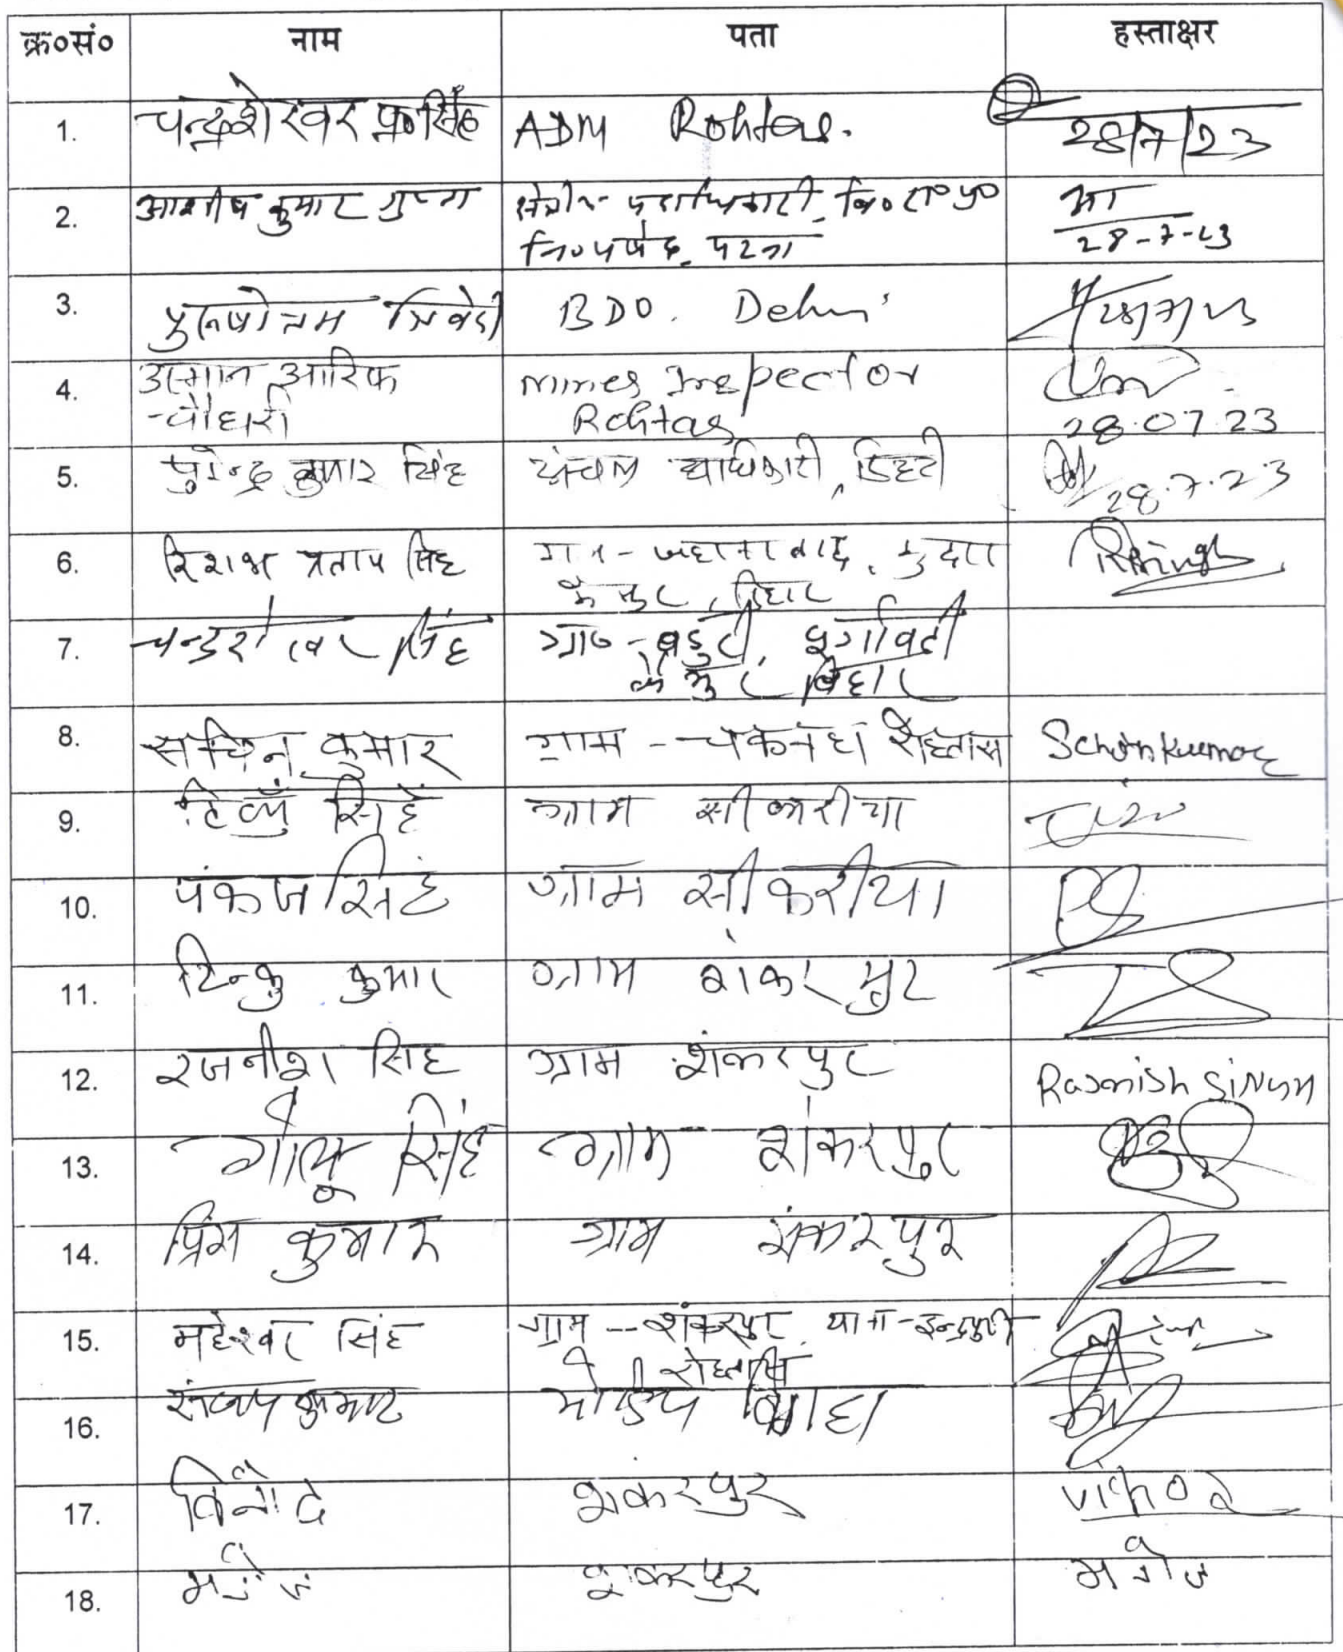 क्र०सं० नाम पता हस्ताक्षर
1. चन्द्रशेखर प्र० सिंह ADM Rohtas. 28/7/23
2. आशीष कुमार गुप्ता क्षेत्रीय पदाधिकारी, बि० रा० प्र०
नि० पर्षद, पटना 28-7-23
3. पुरुषोत्तम त्रिवेदी BDO. Dehri
4. उस्मान आरिफ Mines Inspector
चौधरी Rohtas 28.07.23
5. पुरेन्द्र कुमार सिंह अंचल अधिकारी, डिहरी 28.7.23
6. रिशभ प्रताप सिंह ग्राम - जहानाबाद, कुदरा RPSingh
कैमुर, बिहार
7. चन्द्रशेखर सिंह ग्राम - दुर्गावती
कैमुर बिहार
8. सचिन कुमार ग्राम - चकनहा रोहतास Sachin Kumar
9. टिप्पु सिंह ग्राम सीकरीया
10. पंकज सिंह ग्राम सीकरीया
11. टिन्कु कुमार ग्राम शंकरपुर
12. रजनीश सिंह ग्राम शंकरपुर Rajnish SiNgh
13. गोलू सिंह ग्राम शंकरपुर
14. प्रिंस कुमार ग्राम शंकरपुर
15. महेश्वर सिंह ग्राम - शंकरपुर, थाना - इन्द्रपुरी
रोहतास
16. संजय कुमार
17. विनोद शंकरपुर Vinod
18. मनोज शंकरपुर मनोज